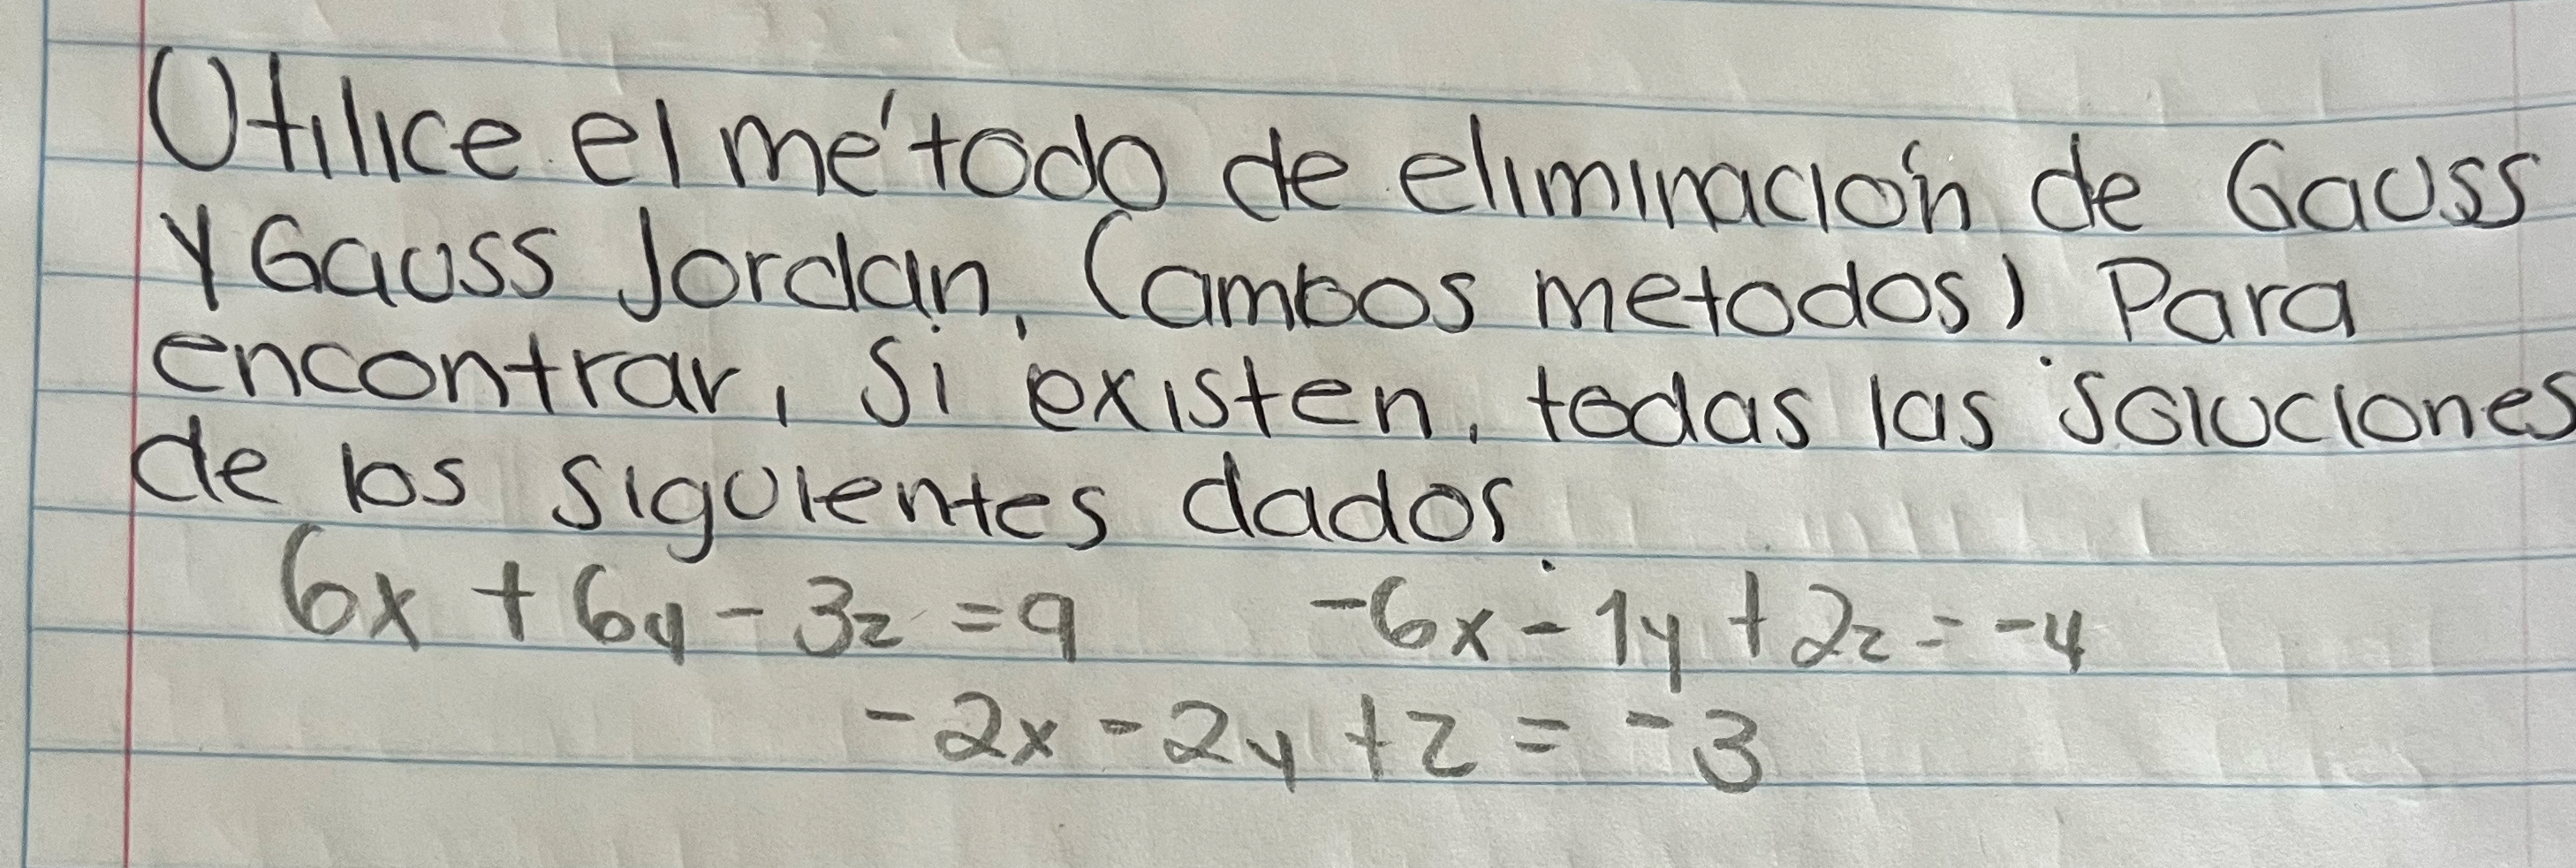 Utilice el método de eliminación de Gauss
y Gauss Jordan, (ambos metodos) Para
encontrar, Si existen, todas las soluciones
de los siguientes dados
6x + 6y - 3z = 9 -6x - 1y + 2z = -4
-2x - 2y + z = -3